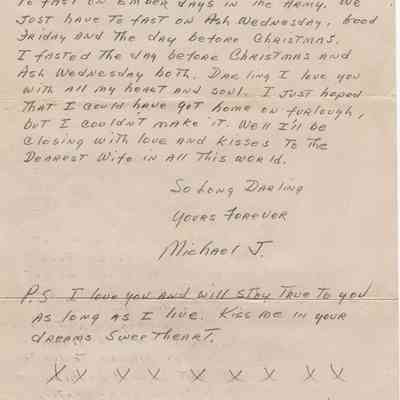 to fast on Ember days in the Army. We
Just have to fast on Ash Wednesday, Good
Friday and the day before Christmas.
I fasted the day before Christmas and
Ash Wednesday both. Darling I love you
with all my heart and soul. I just hoped
that I could have got home on furlough,
but I couldn't make it. Well I'll be
closing with love and kisses to the
Dearest Wife in all this world.
So Long Darling
Yours Forever
Michael J.
P.S. I love you and will stay true to you
as long as I live. Kiss me in your
dreams sweetheart.
X X X X X X X X X